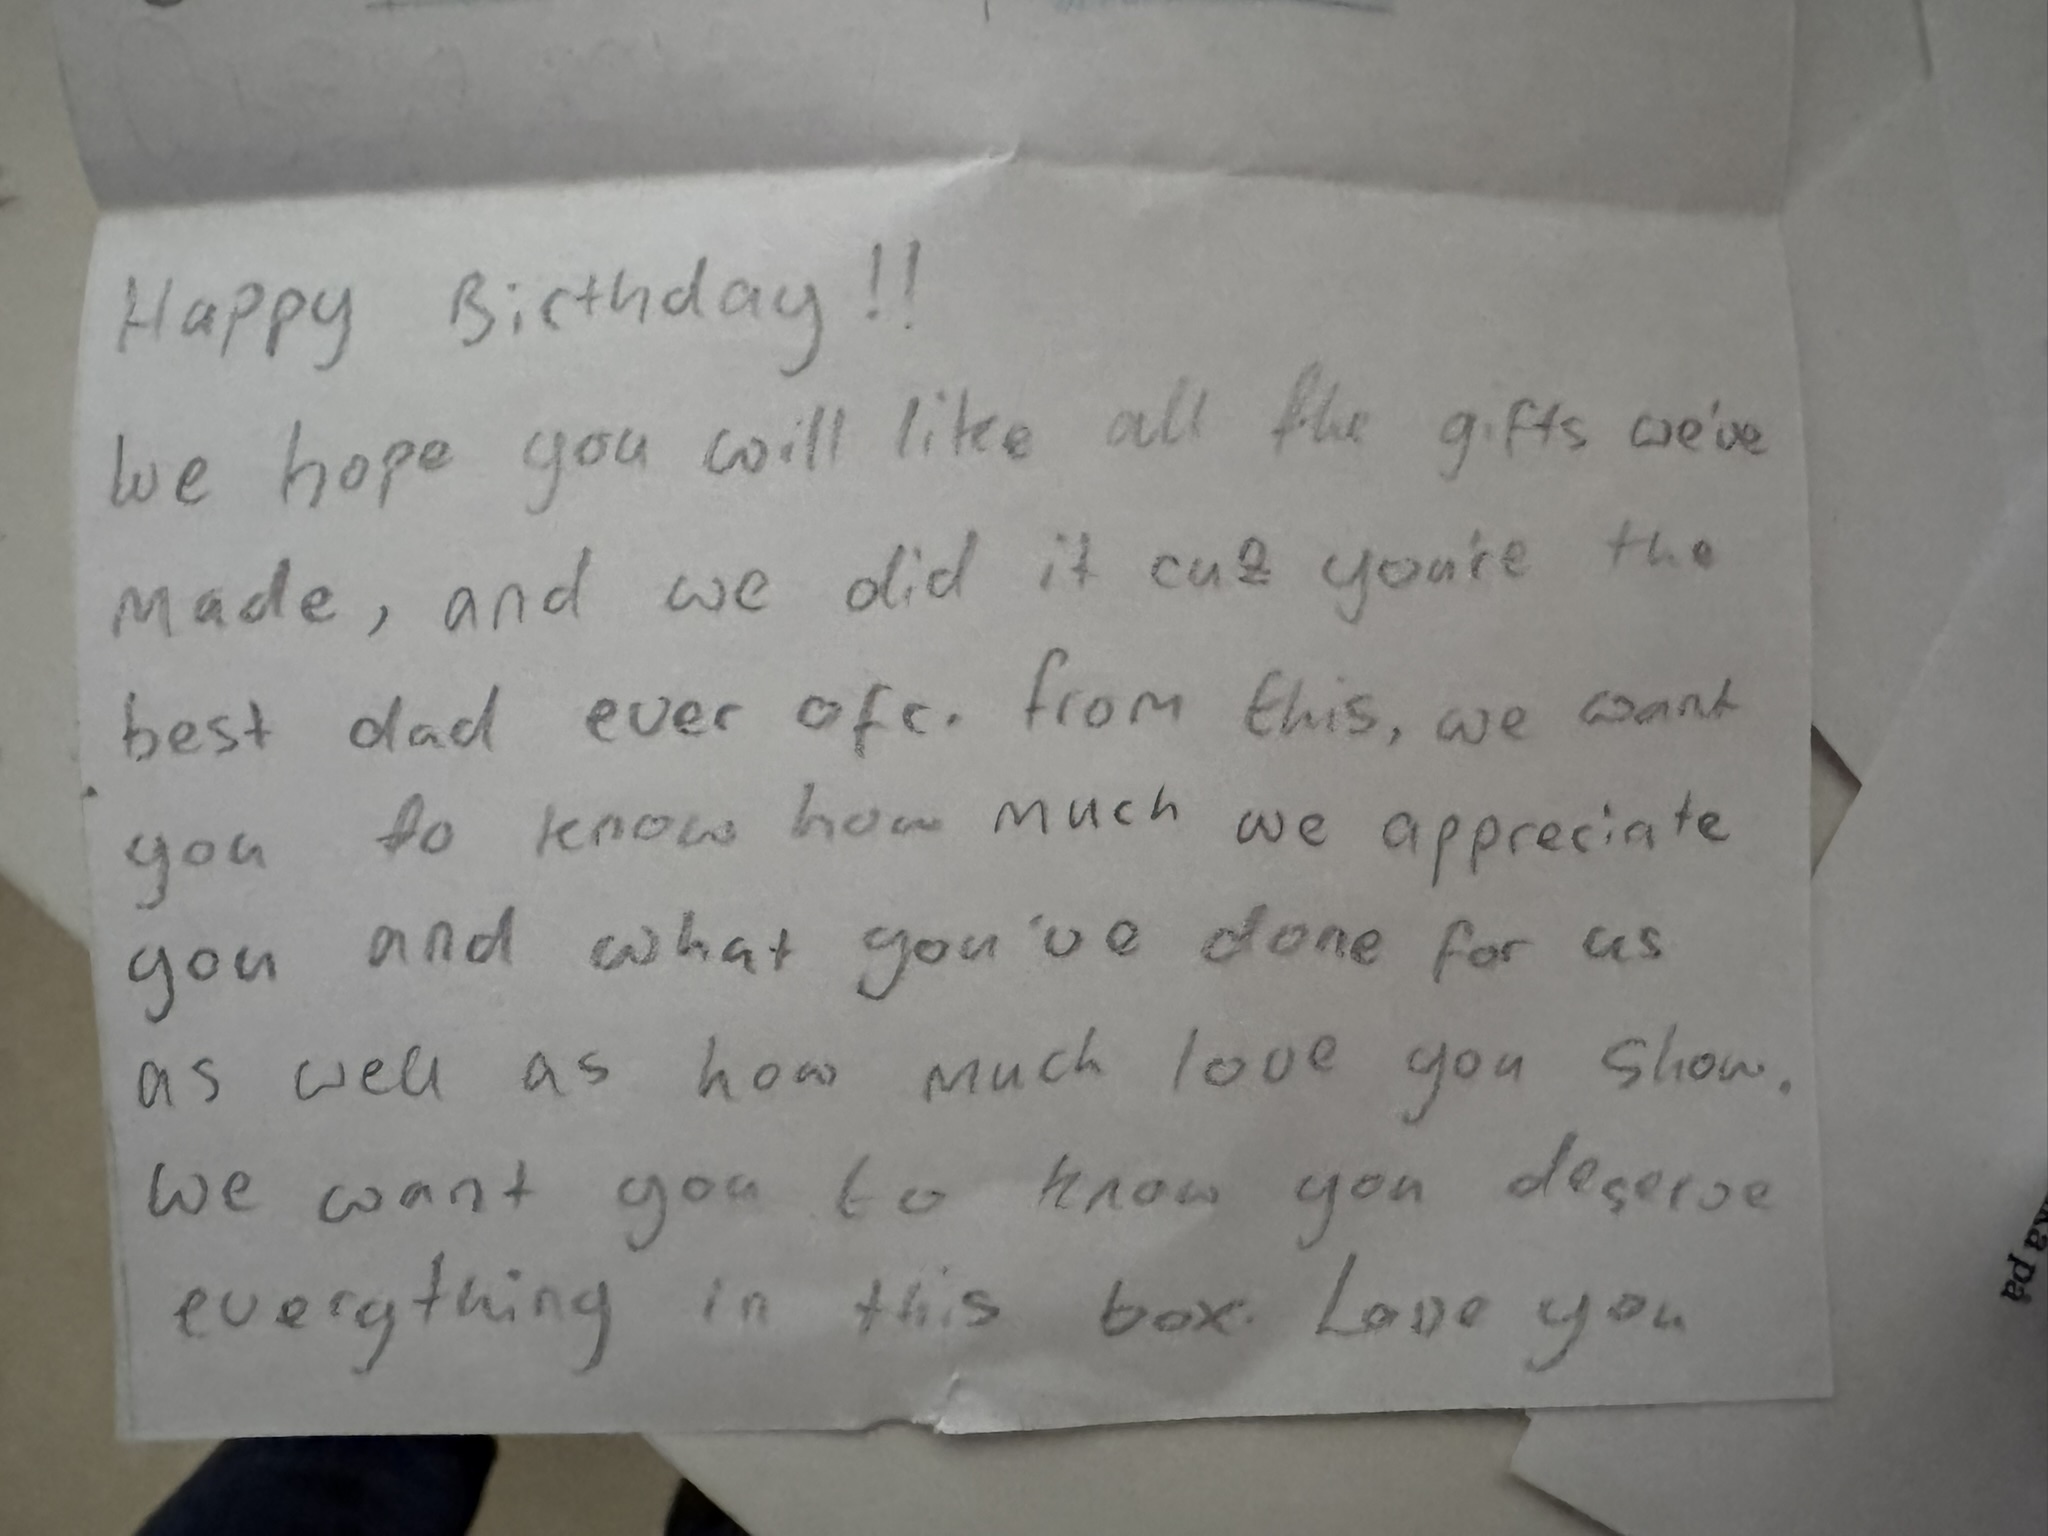 Happy Birthday!!
We hope you will like all the gifts we've
made, and we did it cuz you're the
best dad ever ofc. From this, we want
you to know how much we appreciate
you and what you've done for us
as well as how much love you show.
We want you to know you deserve
everything in this box. Love you